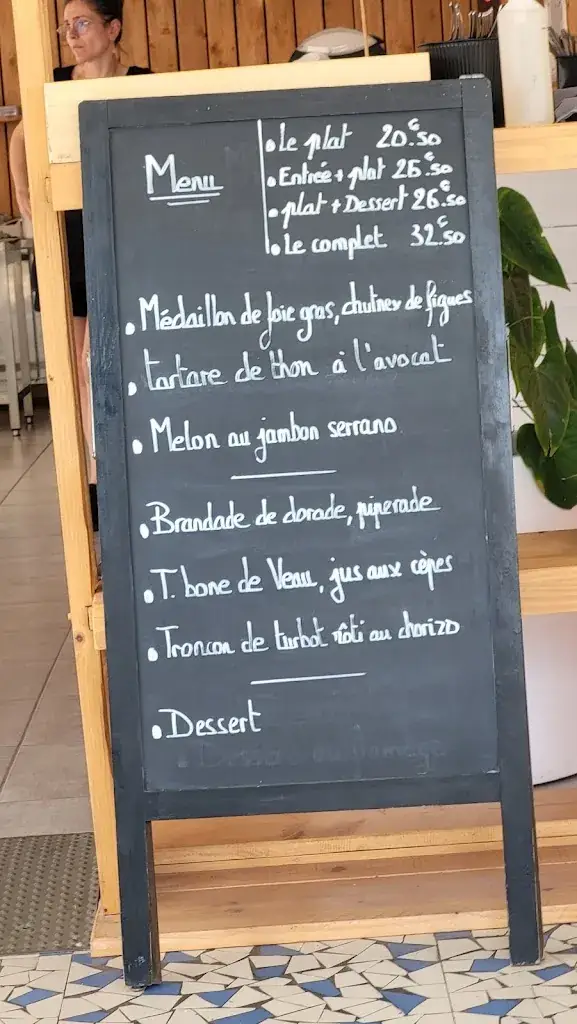 Menu
• Le plat 20€50
• Entrée + plat 26€50
• plat + Dessert 26€50
• Le complet 32€50
• Médaillon de foie gras, chutney de figues
• tartare de thon à l'avocat
• Melon au jambon serrano
• Brandade de dorade, piperade
• T. bone de Veau, jus aux cèpes
• Troncon de turbot rôti au chorizo
• Dessert
• Dessert ou fromage